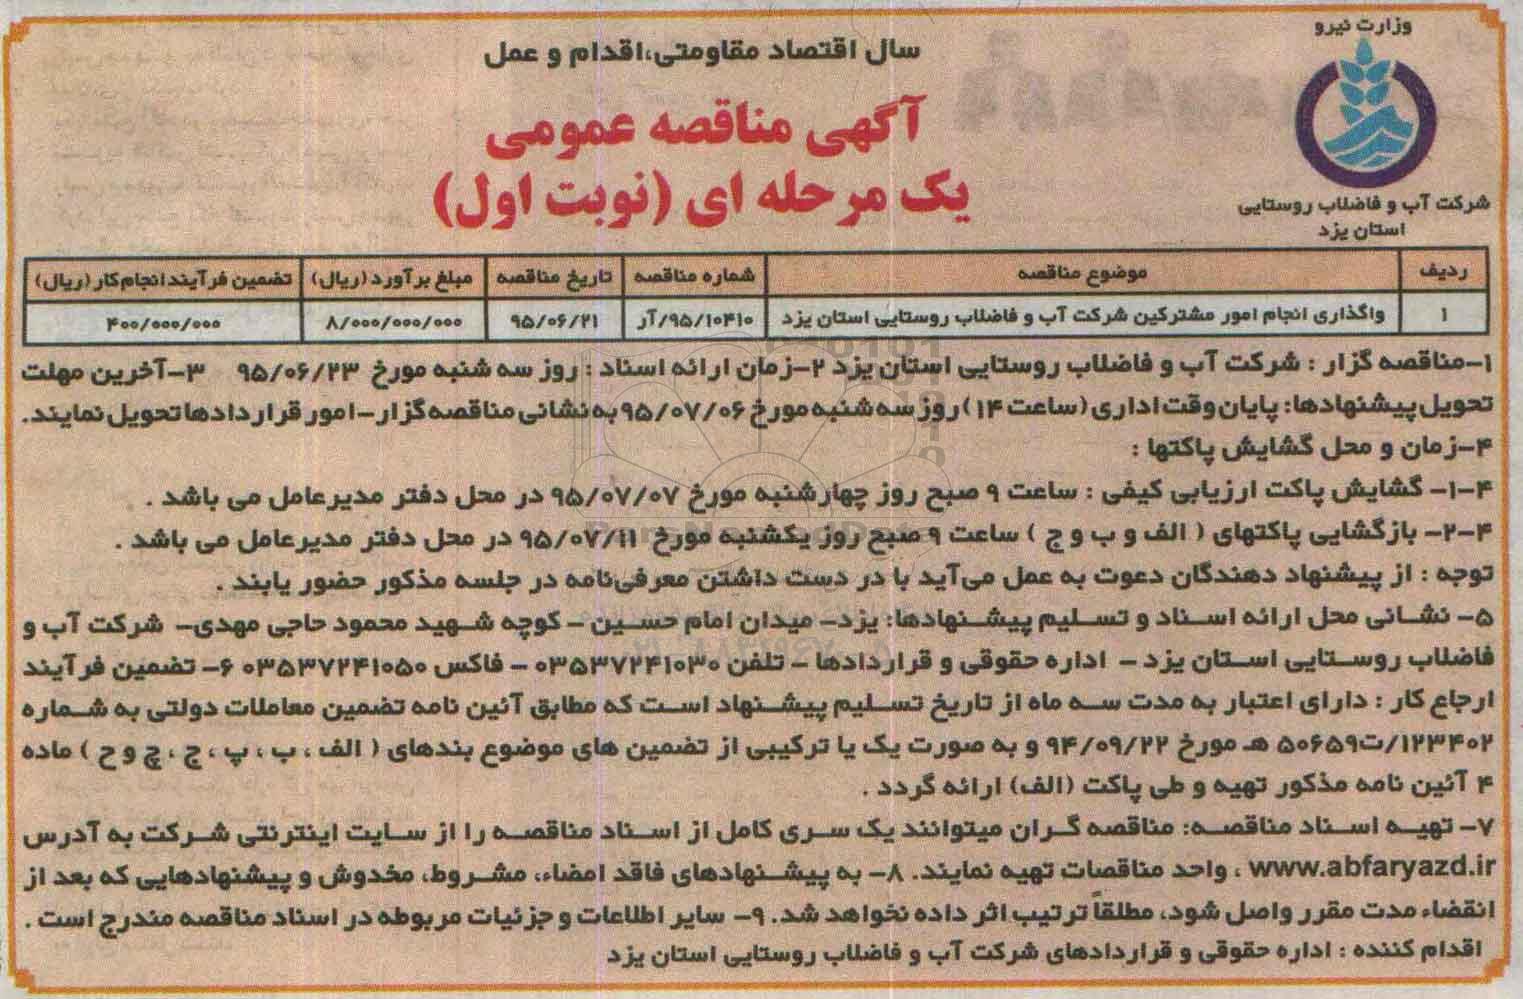 وزارت نیرو
شرکت آب و فاضلاب روستایی
استان یزد
سال اقتصاد مقاومتی،اقدام و عمل
آگهی مناقصه عمومی
یک مرحله ای (نوبت اول)
ردیف موضوع مناقصه شماره مناقصه تاریخ مناقصه مبلغ برآورد (ریال) تضمین فرآیند انجام کار (ریال)
۱ واگذاری انجام امور مشترکین شرکت آب و فاضلاب روستایی استان یزد ۹۵/۱۰۴۱۰/آر ۹۵/۰۶/۲۱ ۸/۰۰۰/۰۰۰/۰۰۰ ۴۰۰/۰۰۰/۰۰۰
۱-مناقصه گزار : شرکت آب و فاضلاب روستایی استان یزد ۲-زمان ارائه اسناد : روز سه شنبه مورخ ۹۵/۰۶/۲۳ ۳-آخرین مهلت
تحویل پیشنهادها: پایان وقت اداری (ساعت ۱۴) روز سه شنبه مورخ ۹۵/۰۷/۰۶ به نشانی مناقصه گزار-امور قراردادها تحویل نمایند.
۴-زمان و محل گشایش پاکتها :
۴-۱- گشایش پاکت ارزیابی کیفی : ساعت ۹ صبح روز چهارشنبه مورخ ۹۵/۰۷/۰۷ در محل دفتر مدیرعامل می باشد .
۴-۲- بازگشایی پاکتهای ( الف و ب و ج ) ساعت ۹ صبح روز یکشنبه مورخ ۹۵/۰۷/۱۱ در محل دفتر مدیرعامل می باشد .
توجه : از پیشنهاد دهندگان دعوت به عمل می‌آید با در دست داشتن معرفی‌نامه در جلسه مذکور حضور یابند .
۵- نشانی محل ارائه اسناد و تسلیم پیشنهادها: یزد- میدان امام حسین - کوچه شهید محمود حاجی مهدی- شرکت آب و
فاضلاب روستایی استان یزد - اداره حقوقی و قراردادها - تلفن ۰۳۵۳۷۲۴۱۰۳۰ - فاکس ۰۳۵۳۷۲۴۱۰۵۰ ۶- تضمین فرآیند
ارجاع کار : دارای اعتبار به مدت سه ماه از تاریخ تسلیم پیشنهاد است که مطابق آئین نامه تضمین معاملات دولتی به شماره
۱۲۳۴۰۲/ت۵۰۶۵۹ هـ مورخ ۹۴/۰۹/۲۲ و به صورت یک یا ترکیبی از تضمین های موضوع بندهای ( الف ، ب ، پ ، ج ، چ و ح ) ماده
۴ آئین نامه مذکور تهیه و طی پاکت (الف) ارائه گردد .
۷- تهیه اسناد مناقصه: مناقصه گران میتوانند یک سری کامل از اسناد مناقصه را از سایت اینترنتی شرکت به آدرس
www.abfaryazd.ir ، واحد مناقصات تهیه نمایند. ۸- به پیشنهادهای فاقد امضاء، مشروط، مخدوش و پیشنهادهایی که بعد از
انقضاء مدت مقرر واصل شود، مطلقاً ترتیب اثر داده نخواهد شد. ۹- سایر اطلاعات و جزئیات مربوطه در اسناد مناقصه مندرج است .
اقدام کننده : اداره حقوقی و قراردادهای شرکت آب و فاضلاب روستایی استان یزد